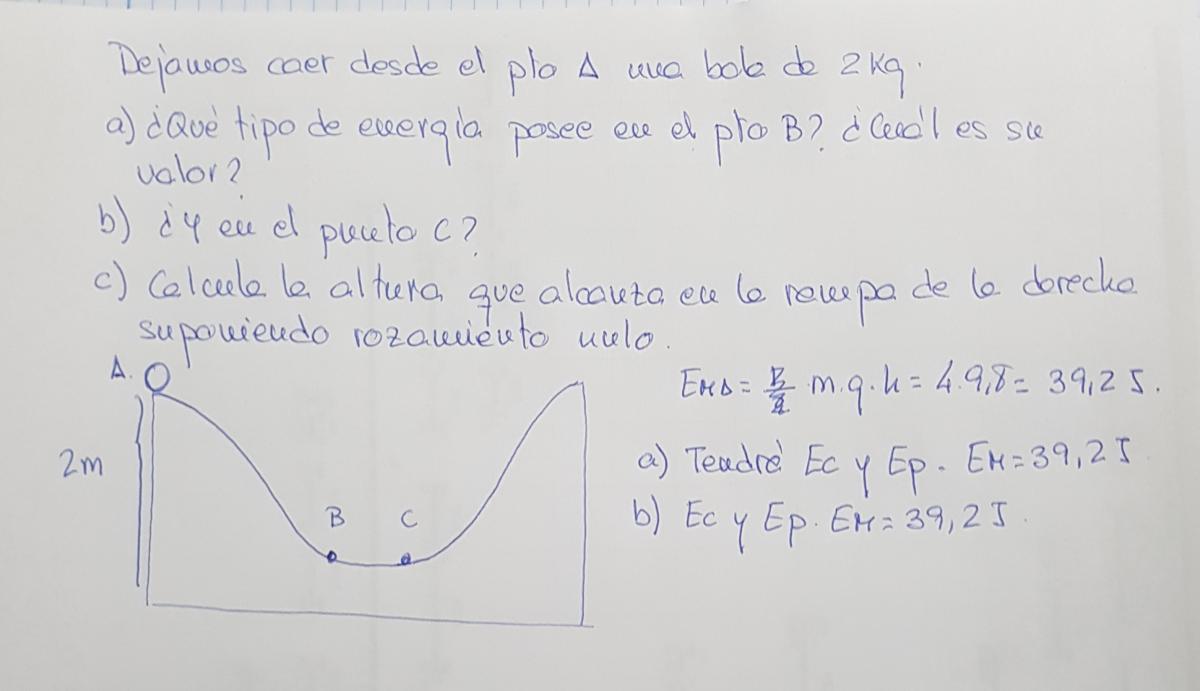 Dejamos caer desde el pto A una bola de 2 Kg.
a) ¿Qué tipo de energía posee en el pto B? ¿Cuál es su
valor?
b) ¿Y en el punto C?
c) Calcula la altura que alcanza en la rampa de la derecha
suponiendo rozamiento nulo.
A.
2m
B
C
EMA = m.g.h = 4.9,8 = 39,2 J.
a) Tendrá Ec y Ep. EM = 39,2 J
b) Ec y Ep. EM = 39,2 J.